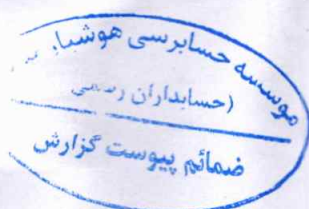 موسسه حسابرسی هوشیار
(حسابداران رسمی
ضمائم پیوست گزارش